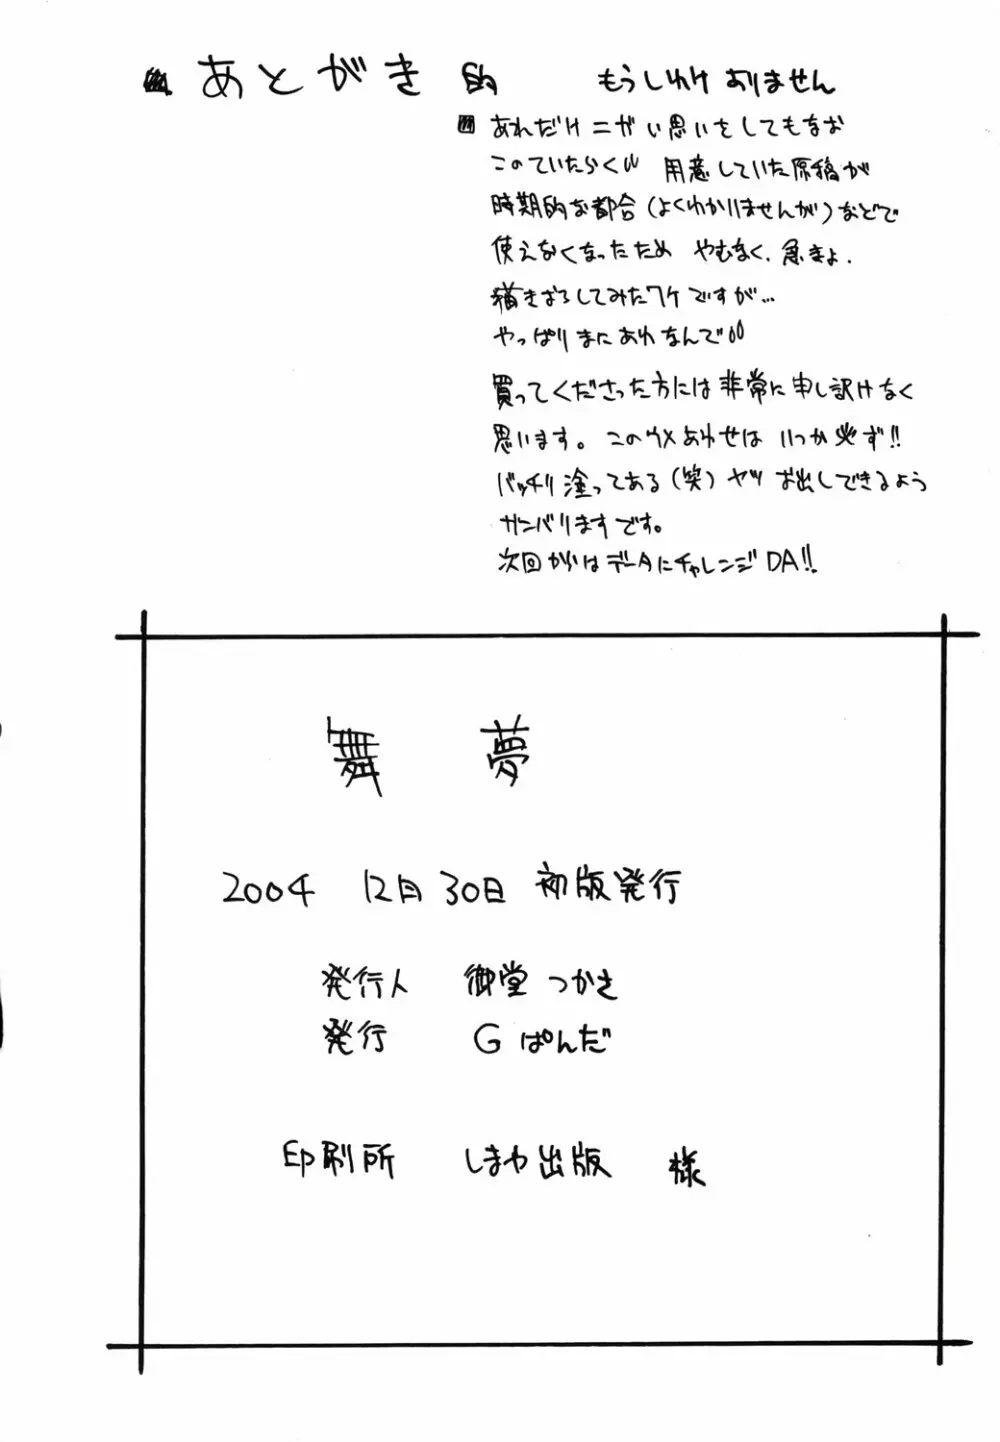 あとがき 的 もうしわけありません
あれだけニガい思いをしてもなお
このていたらく 用意していた原稿が
時期的な都合(よくわかりませんが)などで
使えなくなったため やむなく、急きょ、
描きおろしてみたワケですが…
やっぱりまにあわなんで
買ってくださった方には非常に申し訳けなく
思います。このウメあわせは いつか必ず!!
バッチリ塗ってある(笑)ヤツ お出しできるよう
ガンバリますです。
次回からはデータにチャレンジDA!!
舞 夢
2004 12月30日 初版発行
発行人 御堂 つかさ
発行 G ぱんだ
印刷所 しまや出版 様